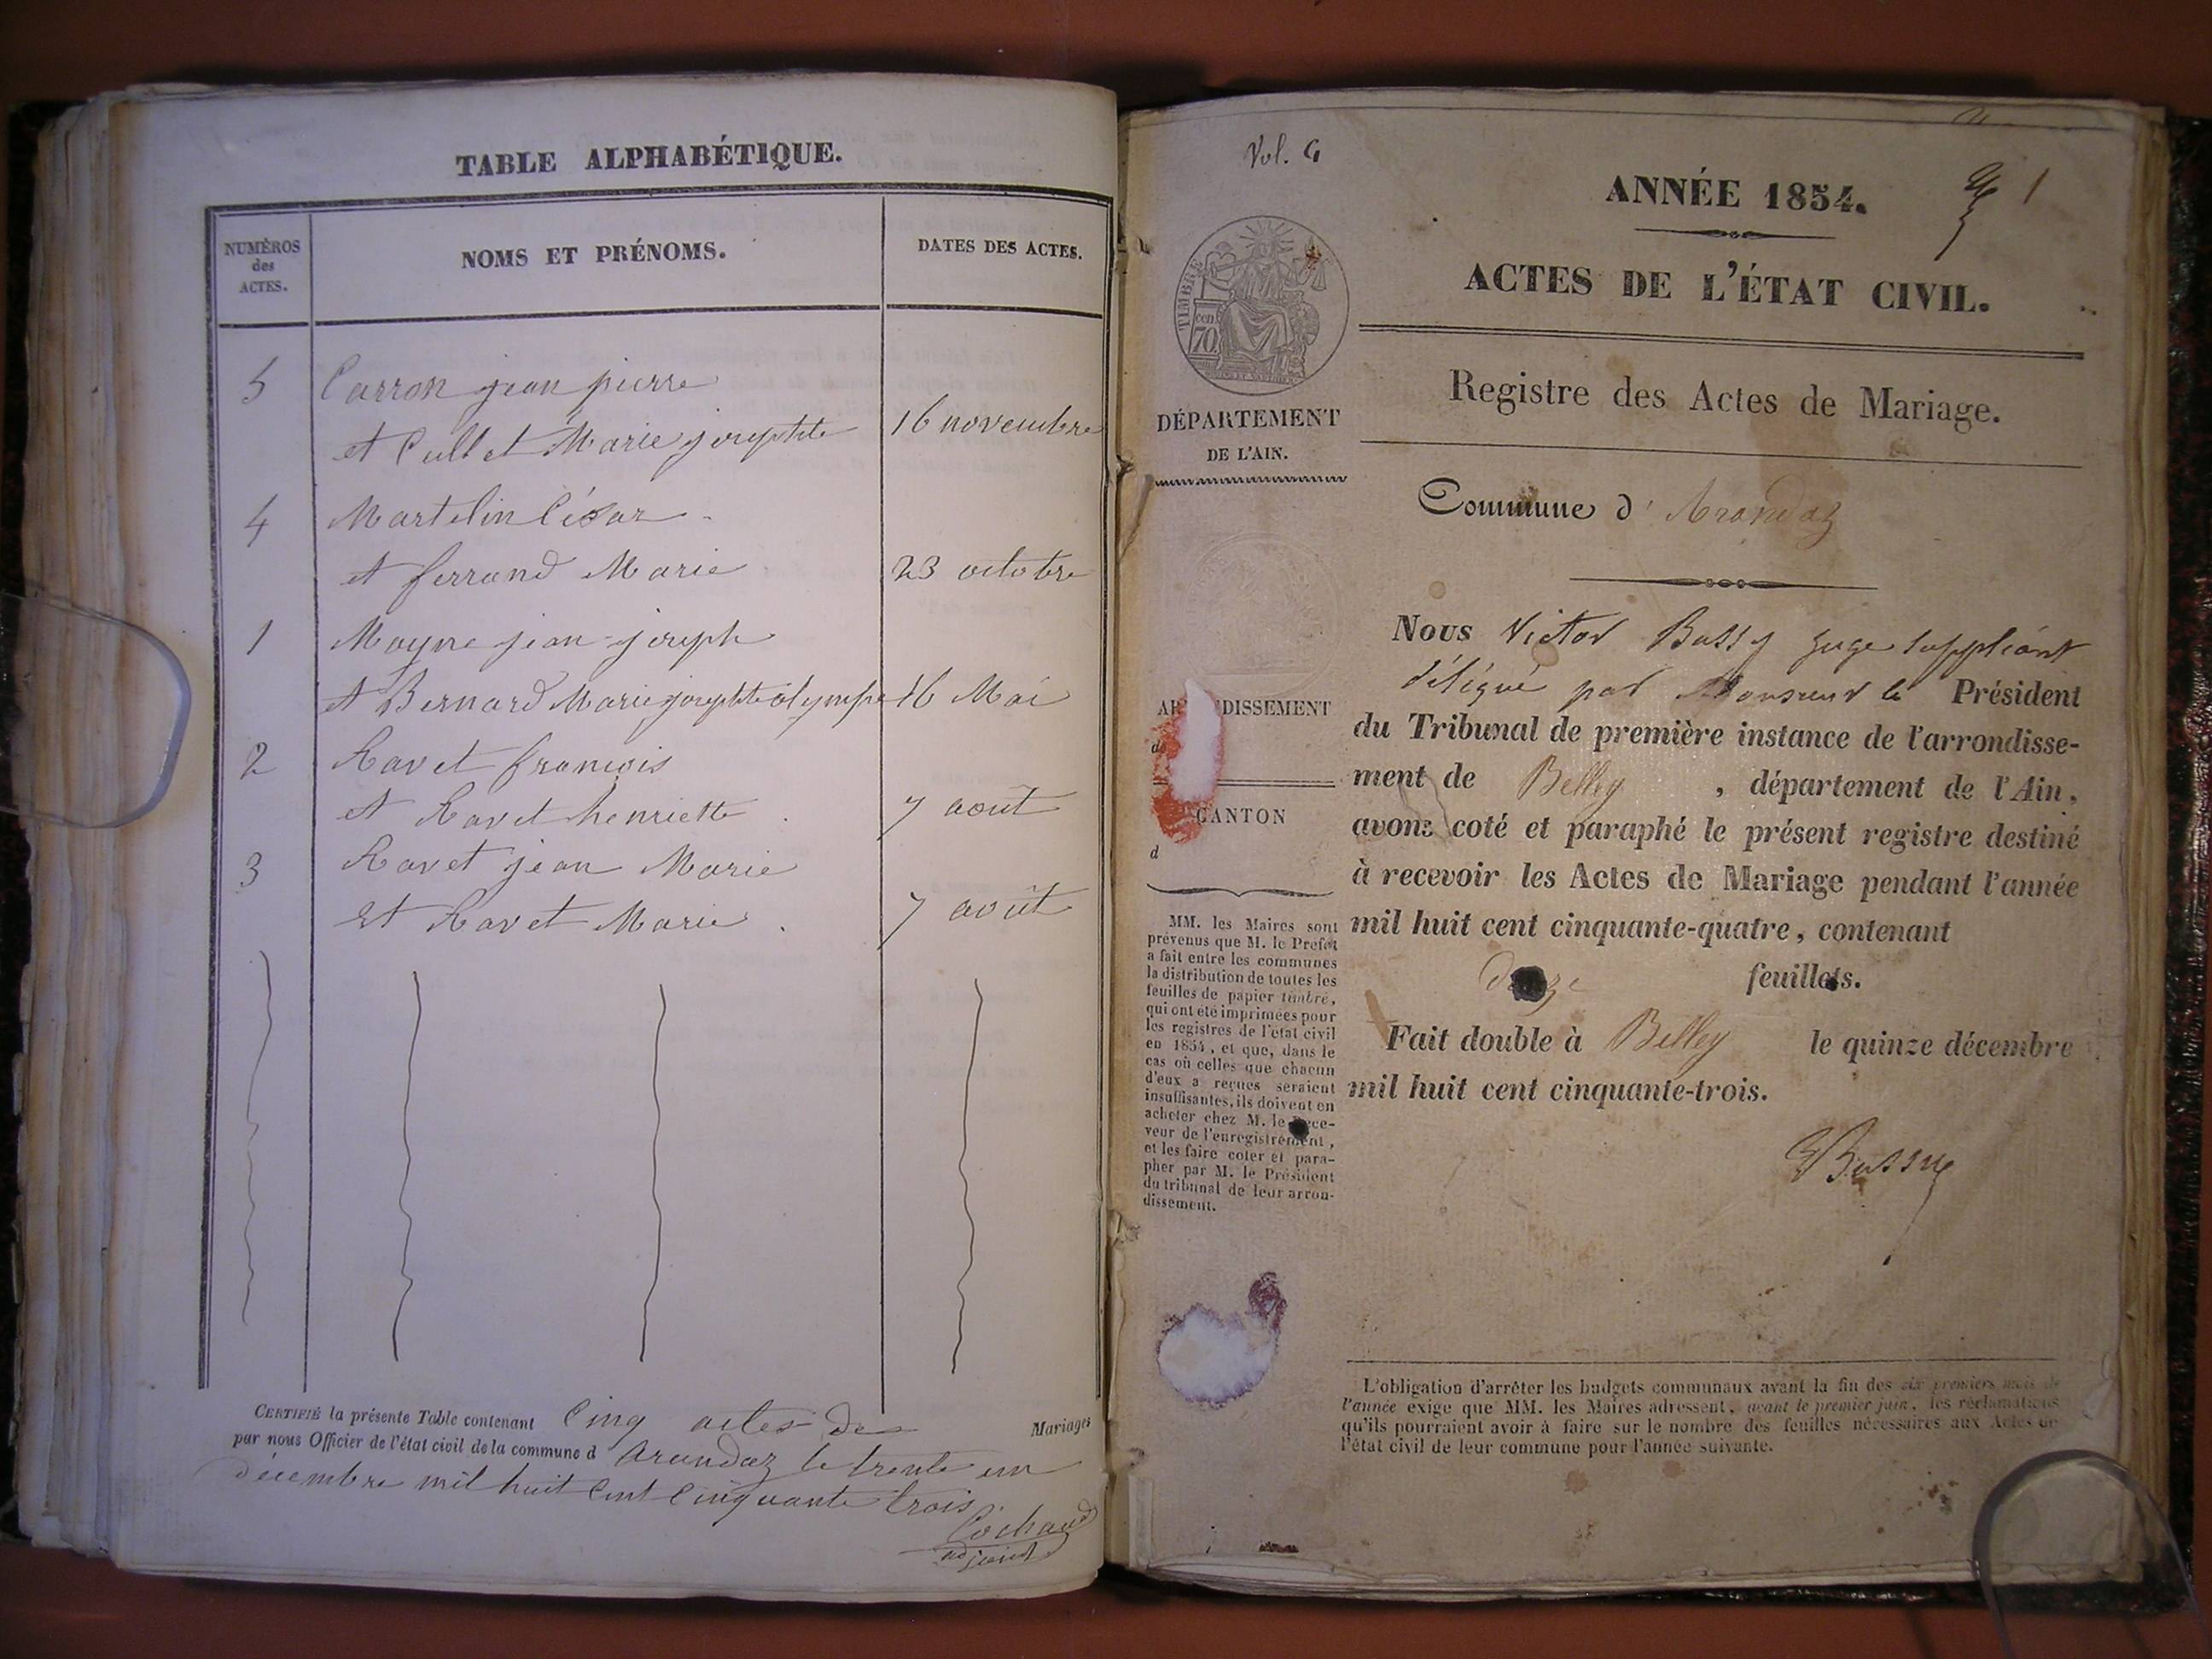 TABLE ALPHABÉTIQUE.
NUMÉROS
des
ACTES.
NOMS ET PRÉNOMS.
DATES DES ACTES.
5 Carron jean pierre
et Cullet Marie josephte 16 novembre
4 Martelin César
et ferrand Marie 23 octobre
1 Moyne jean joseph
et Bernard Marie josephte olympe 16 Mai
2 Ravet françois
et Ravet henriette 7 août
3 Ravet jean Marie
et Ravet Marie 7 août
CERTIFIÉ la présente Table contenant Cinq actes de Mariages
par nous Officier de l'état civil de la commune d Arandaz le trente un
décembre mil huit Cent Cinquante trois
Cochaud
adjoint
Vol. G
1
ANNÉE 1854.
ACTES DE L'ÉTAT CIVIL.
Registre des Actes de Mariage.
TIMBRE
cen.
70.
DÉPARTEMENT
DE L'AIN.
Commune d' Arandaz
Nous Victor Bussy juge suppléant
délégué par Monsieur le Président
du Tribunal de première instance de l'arrondisse-
ment de Belley , département de l'Ain,
avons coté et paraphé le présent registre destiné
à recevoir les Actes de Mariage pendant l'année
mil huit cent cinquante-quatre, contenant
feuillets.
Fait double à Belley le quinze décembre
mil huit cent cinquante-trois.
Bussy
AR DISSEMENT
de
CANTON
d
MM. les Maires sont
prévenus que M. le Préfet
a fait entre les communes
la distribution de toutes les
feuilles de papier timbré,
qui ont été imprimées pour
les registres de l'état civil
en 1854, et que, dans le
cas où celles que chacun
d'eux a reçues seraient
insuffisantes, ils doivent en
acheter chez M. le Rece-
veur de l'enregistrement,
et les faire coter et para-
pher par M. le Président
du tribunal de leur arron-
dissement.
L'obligation d'arrêter les budgets communaux avant la fin des six premiers mois de
l'année exige que MM. les Maires adressent, avant le premier juin, les réclamations
qu'ils pourraient avoir à faire sur le nombre des feuilles nécessaires aux Actes de
l'état civil de leur commune pour l'année suivante.